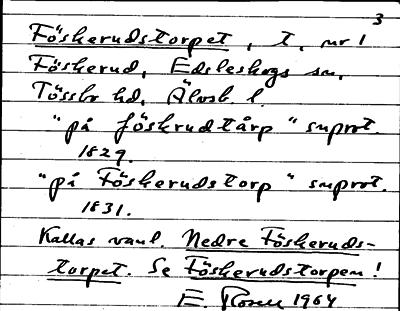 3
Föskerudstorpet, t. nr 1
Föskerud, Edsleskogs sn,
Tössbo hd, Älvsb. l.
"på föskrudtårp" suprot.
1829.
"på Föskerudstorp" suprot.
1831.
Kallas vanl. Nedre Föskeruds-
torpet. Se Föskerudstorpen!
E. Rosell 1964